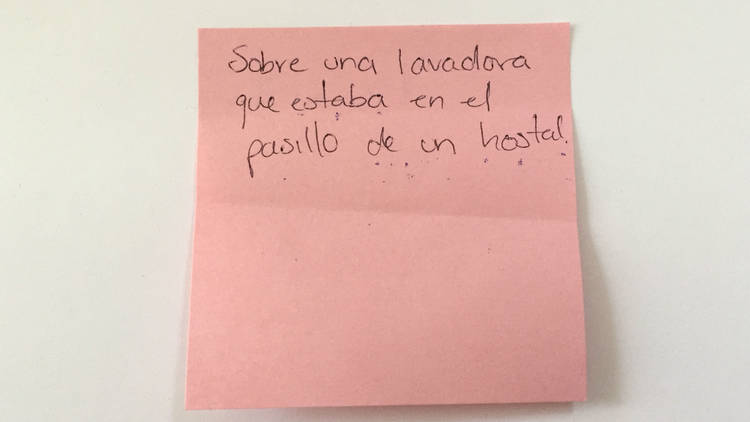 Sobre una lavadora
que estaba en el
pasillo de un hostal.